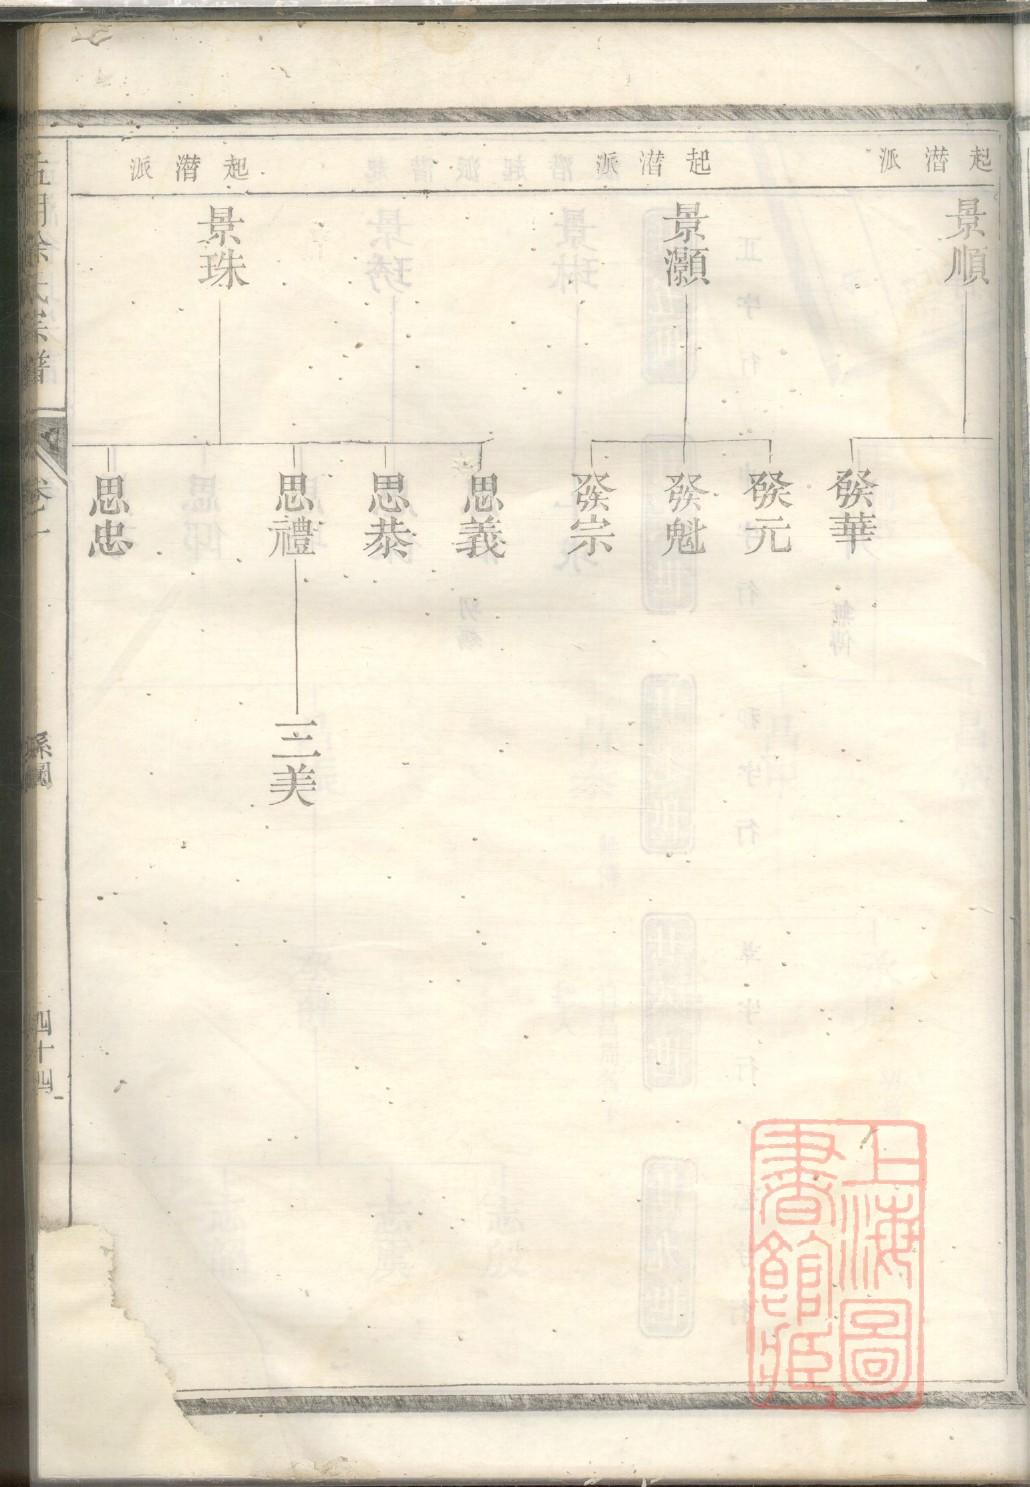 起潛派
起潛派
起潛派
景順
景灝
景珠
發華
發元
發魁
發宗
思義
思恭
思禮
思忠
三美
氏宗譜
卷一
系圖
四十四
上海圖
書館藏